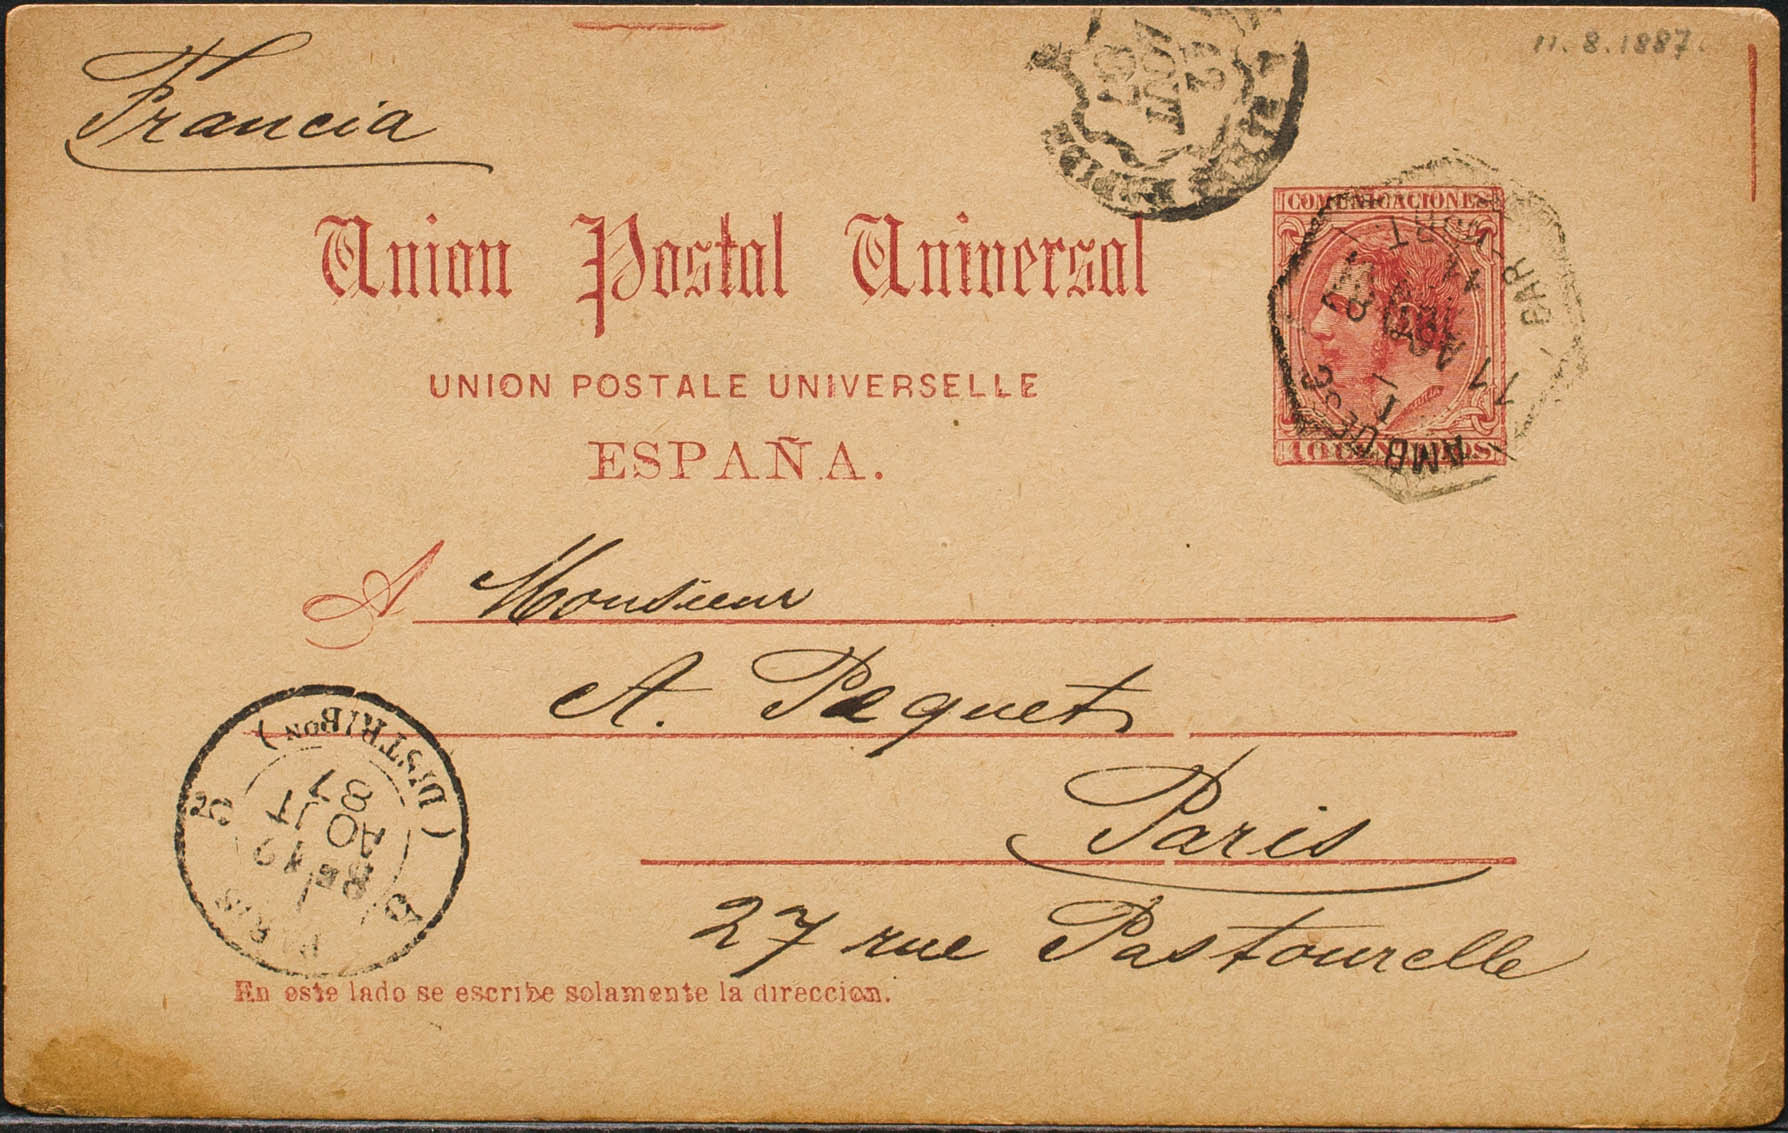 Francia
11.8.1887.
12
AOUT
87
Union Postal Universal
UNION POSTALE UNIVERSELLE
ESPAÑA.
COMUNICACIONES
11 AGO 87
10 CENTIMOS
A Monsieur
A. Paquet
Paris
27 rue Pastourelle
PARIS
5E 12
AOUT
87
(DISTRIBON)
En este lado se escribe solamente la direccion.